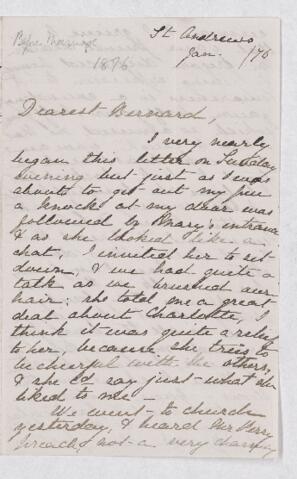 Before Marriage
1876
St Andrews
Jan. /76
Dearest Bernard,
I very nearly
began this letter on Sunday
evening but just as I was
about to get out my pen
a knock at my door was
followed by Mary's entrance
& as she looked like a
chat, I invited her to sit
down, & we had quite a
talk as we brushed our
hair; she told me a great
deal about Charlotte, I
think it was quite a relief
to her, because she tries to
be cheerful with the others,
& she cd say just what she
liked to me—
We went to church
yesterday, & heard Mr
preach, not a very charming